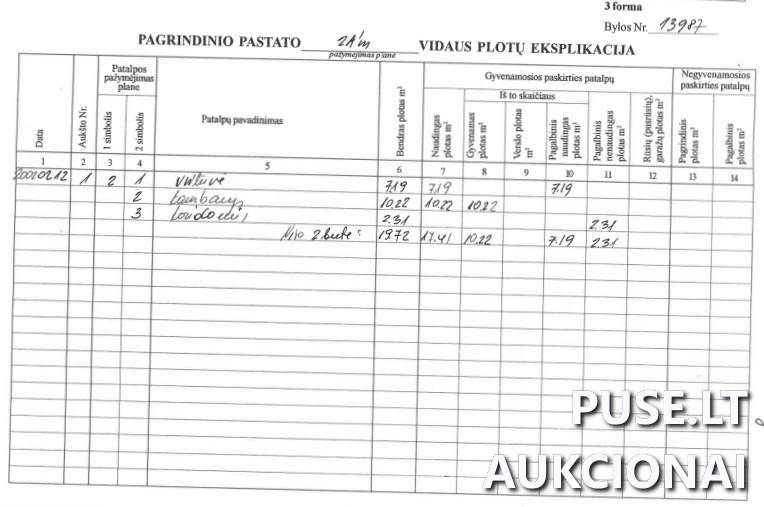 3 forma
Bylos Nr. 13987
PAGRINDINIO PASTATO 2A1m VIDAUS PLOTŲ EKSPLIKACIJA
pažymėjimas plane
Data
Aukšto Nr.
Patalpos pažymėjimas plane
1 simbolis
2 simbolis
Patalpų pavadinimas
Bendras plotas m²
Gyvenamosios paskirties patalpų
Naudingas plotas m²
Iš to skaičiaus
Gyvenamas plotas m²
Verslo plotas m²
Pagalbinis naudingas plotas m²
Pagalbinis nenaudingas plotas m²
Rūsių (pusrūsių), garažų plotas m²
Negyvenamosios paskirties patalpų
Pagrindinis plotas m²
Pagalbinis plotas m²
1 2 3 4 5 6 7 8 9 10 11 12 13 14
20020212 1 2 1 virtuvė 7.19 7.19 7.19
2 kambarys 10.22 10.22 10.22
3 koridorius 2.31 2.31
Viso 2 bute: 19.72 17.41 10.22 7.19 2.31
PUSE.LT
AUKCIONAI